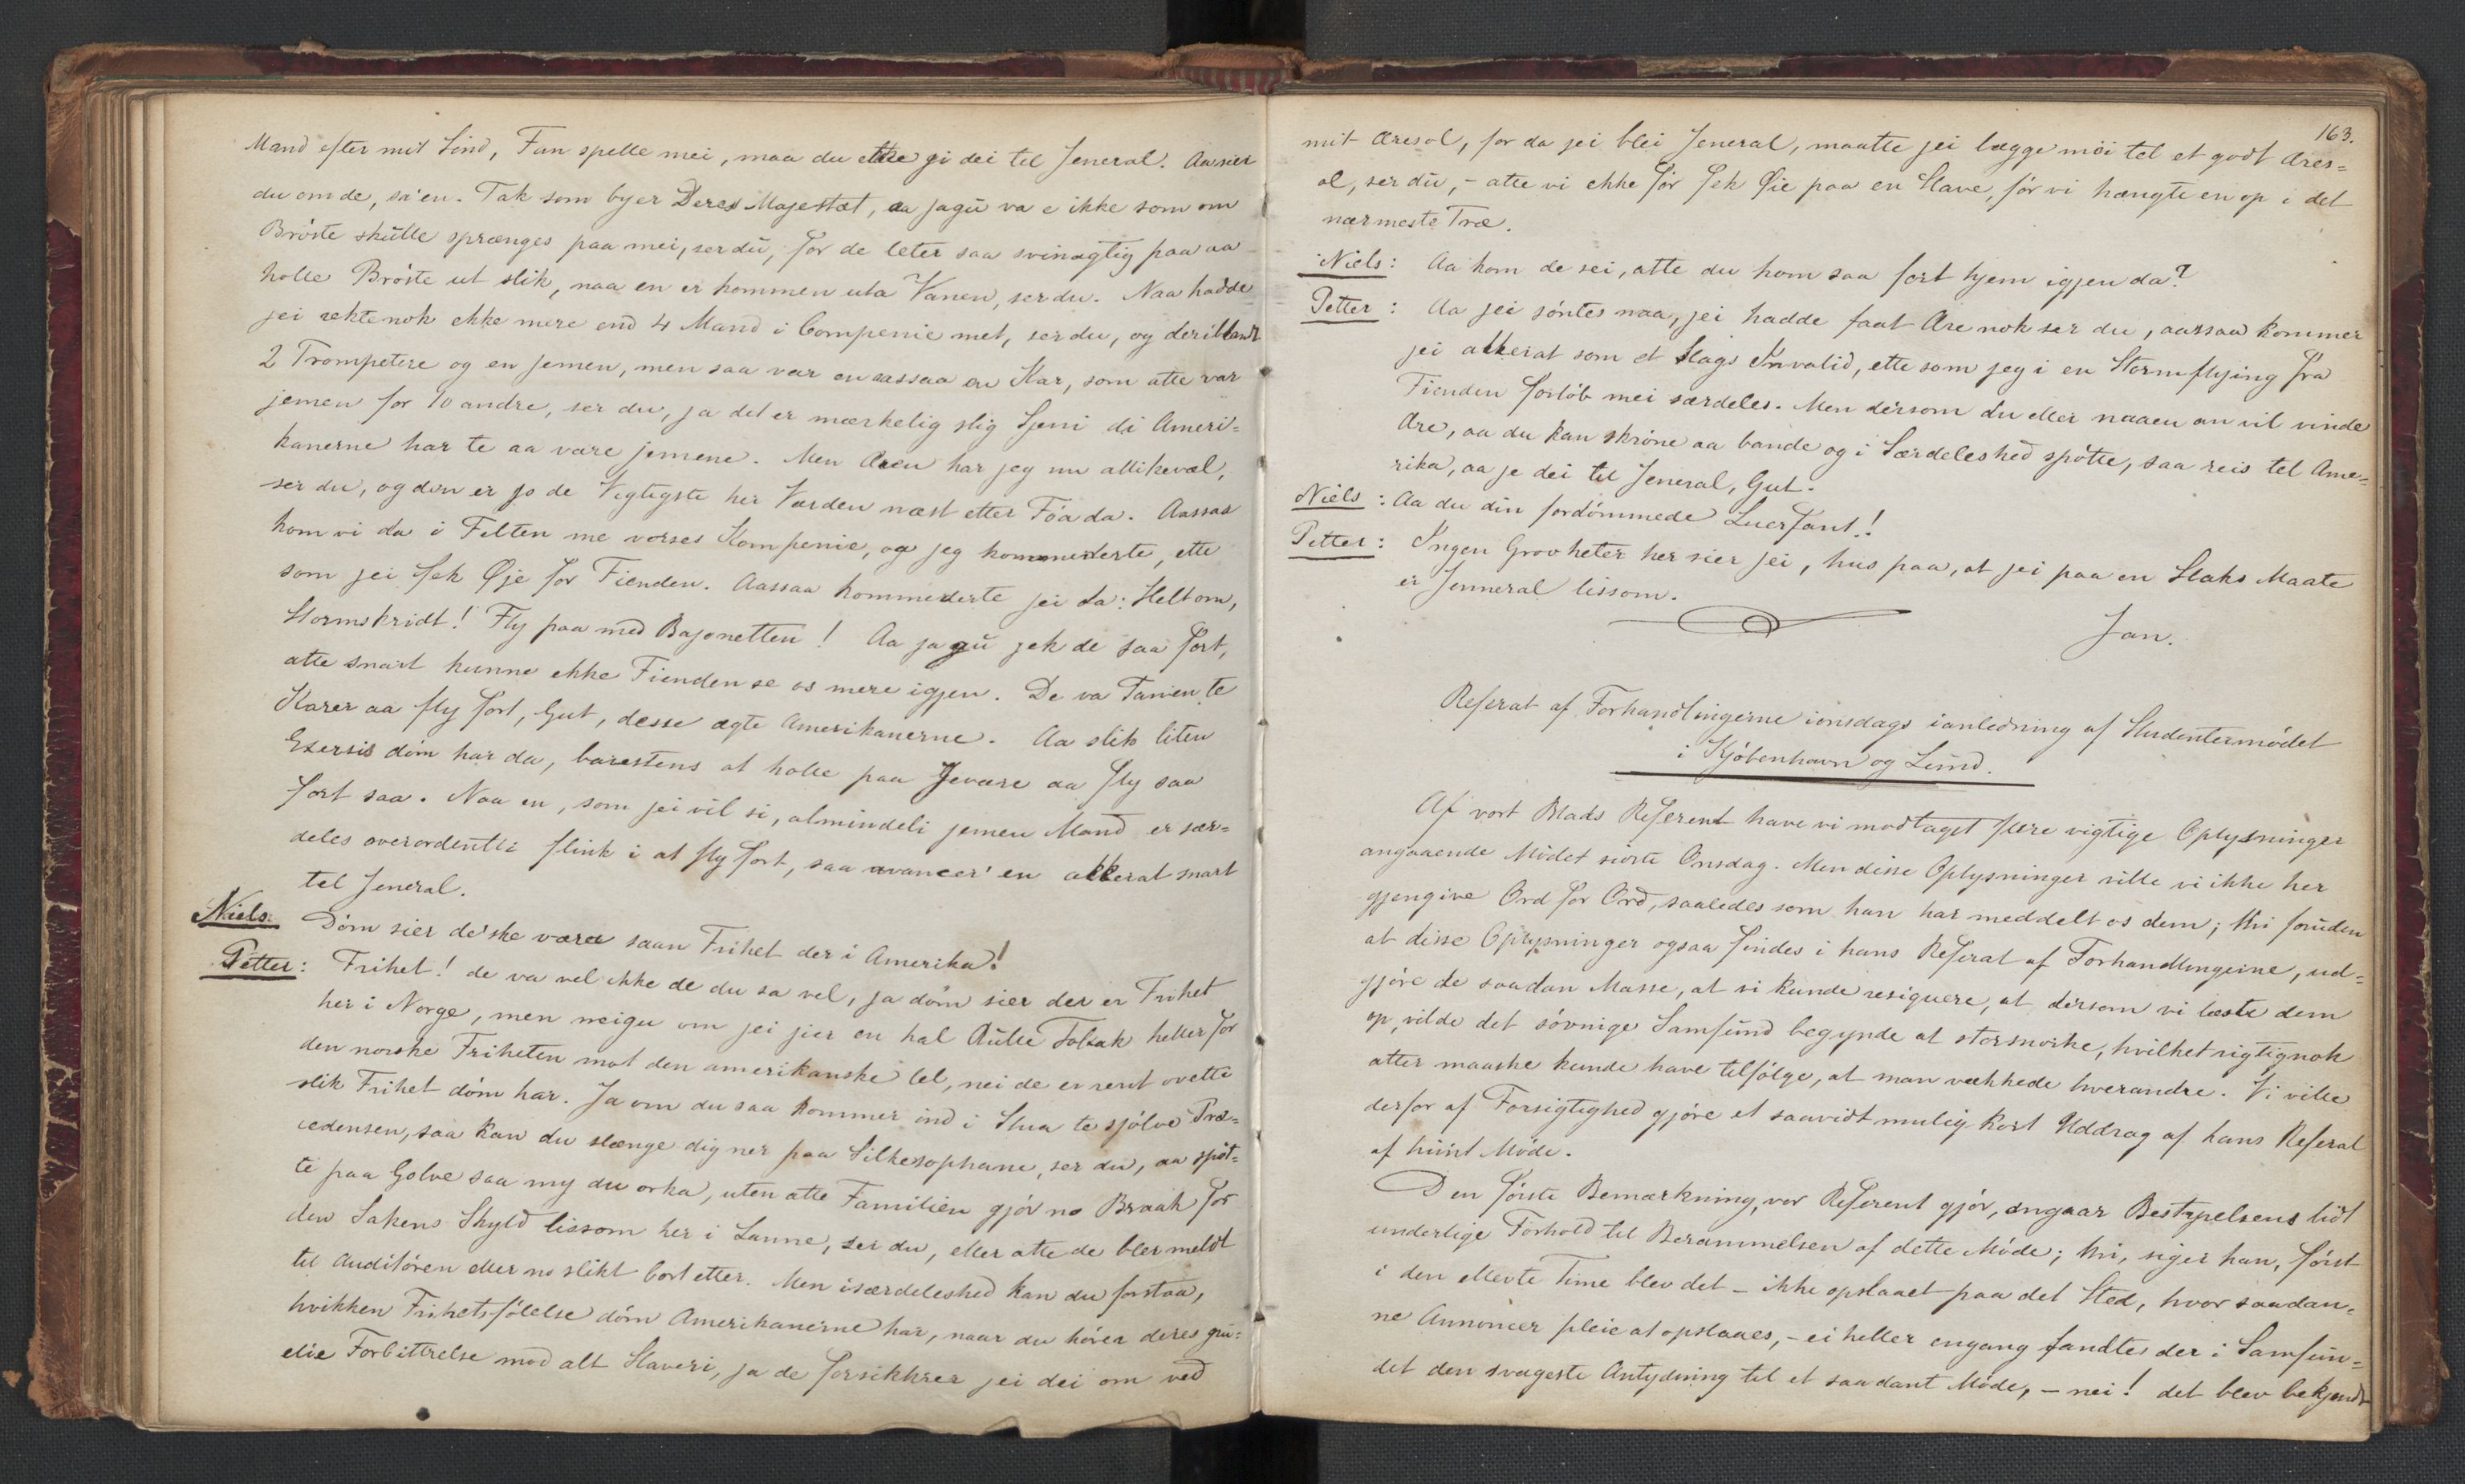 Mand efter mit Sind, Fan spelle mei, maa du ette gi dei tel Jeneral. Aa sier
du om de, sa'en. Tak som byer Deres Majestæt, aa jagu va e ikke som om
Brøste skulle sprænges paa mei, ser du, for de leter saa svinagtig paa aa
holle Brøste ut slik, naa en er kommen uta Vanen, ser du. Naa hadde
jei rektenok ekke mere end 4 Mand i Compenie met, ser du, og deriblandt
2 Trompetere og en jemen, men saa var en aassaa en Kar, som atte var
jemen for 10 andre, ser du, ja det er mærkelig slig Sjeni di Ameri=
kanerne har te aa være jemene. Men Æren har jeg nu allikevæl,
ser du, og den er jo de Vigtigste her Værden næst etter Föa da. Aassaa
kom vi da i Felten me vorses Kompenie, og jeg kommederte, ette
som jei fek Øje for Fienden. Aassaa kommederte jei da: Helt om,
Stormskridt! Fly paa med Bajonetten! Aa jagu jek de saa fort,
atte snart kunne ekke Fienden se os mere igjen. De va Fanien te
Karer aa fly fort, Gut, desse ægte Amerikanerne. Aa slik liten
Exersis döm har da, barestens at holle paa Jevære aa fly saa
fort saa. Naa en, som jei vil si, almindeli jemen Mand er sær=
deles overordentli flink i at fly fort, saa avancer' en akkerat snart
tel Jeneral.
Niels: Döm sier de' ske være saan Frihet der i Amerika!
Petter: Frihet! de va vel ikke de du sa vel, ja döm sier der er Frihet
her i Norge, men neigu om jei jier en hal Rulle Tobak heller for
den norske Friheten mot den amerikanske lel, nei de er rent ovette
slik Frihet döm har. Ja om du saa kommer ind i Stua te sjölve Præ=
cedensen, saa kan du slænge dig ner paa Silkesophane, ser du, aa spöt=
te paa Golve saa my du orka, uten atte Familien gjör no Braak for
den Sakens Skyld lissom her i Lanne, ser du, eller atte de bler meldt
til Auditören eller no slikt bortetter. Men isærdeleshed kan du forstaa,
hvikken Frihetsfölelse döm Amerikanerne har, naar du hörer deres gru=
elie Forbittrelse mod alt Slaveri, ja de forsikkrer jei dei om ved
163.
mit Æresol, for da jei blei Jeneral, maatte jei lægge mei tel et godt Æres=
ol, ser du, – atte vi ekke för fek Øie paa en Slave, för vi hængte en op i det
nærmeste Træ.
Niels: Aa kom de sei, atte du kom saa fort hjem igjen da?
Petter: Aa jei söntes naa, jei hadde faat Ære nok ser du, aassaa kommer
jei akkerat som et Slags Invalid, ette som jeg i en Stormflying fra
Fienden forlöb mei særdeles. Men dersom du eller naaen an vil vinde
Ære, aa du kan skröne aa bande og i Særdeleshed spötte, saa reis tel Ame=
rika, aa je dei til Jeneral, Gut.
Niels: Aa du din fordömmede Luerfant!
Petter: Ingen Grovheter her sier jei, hus paa, at jei paa en Slaks Maate
er Jenneral lissom.
Jan.
Referat af Forhandlingerne ionsdags ianledning af Studentermödet
i Kjöbenhavn og Lund.
Af vort Blads Referent have vi modtaget flere vigtige Oplysninger
angaaende Mödet sidste Onsdag. Men disse Oplysninger ville vi ikke her
gjengive Ord for Ord, saaledes som han har meddelt os dem; thi foruden
at disse Oplysninger ogsaa findes i hans Referat af Forhandlingerne, ud=
gjöre de saadan Masse, at vi kunde resiquere, at dersom vi læste dem
op, vilde det sövnige Samfund begynde at storsnorke, hvilket rigtignok
atter maaske kunde have tilfölge, at man vækkede hverandre. Vi ville
derfor af Forsigtighed gjöre et saavidt mulig kort Uddrag af hans Referat
af hiint Möde.
Den förste Bemærkning, vor Referent gjör, angaar Bestyrelsens lidt
underlige Forhold til Berammelsen af dette Möde; thi, siger han, först
i den ellevte Time blev det – ikke opslaaet paa det Sted, hvor saadan=
ne Annoncer pleie at opslaaes, – ei heller engang fandtes der i Samfun=
det den svageste Antydning til et saadant Möde, – nei! det blev bekjendt